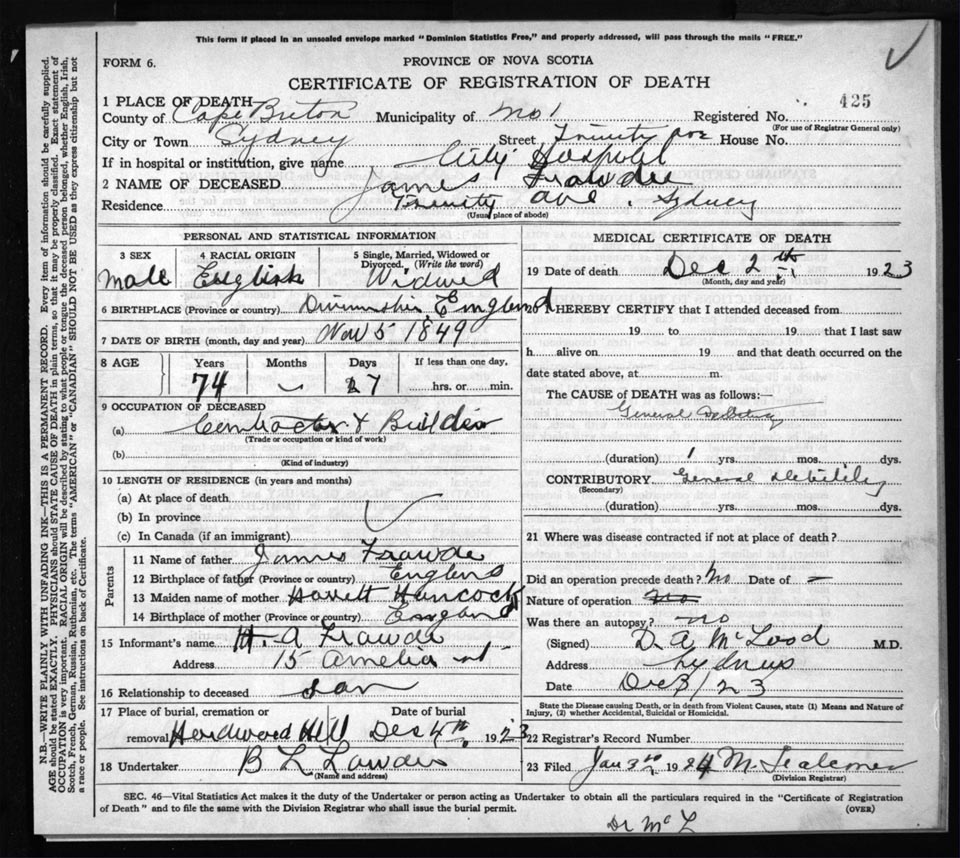 This form if placed in an unsealed envelope marked "Dominion Statistics Free," and properly addressed, will pass through the mails "FREE."
FORM 6.
PROVINCE OF NOVA SCOTIA
CERTIFICATE OF REGISTRATION OF DEATH
425
1 PLACE OF DEATH
County of Cape Breton Municipality of No 1 Registered No.
(For use of Registrar General only)
City or Town Sydney Street Trinity ave House No.
If in hospital or institution, give name City Hospital
2 NAME OF DECEASED James Frawdee
Residence Trinity ave. Sydney
(Usual place of abode)
PERSONAL AND STATISTICAL INFORMATION
3 SEX 4 RACIAL ORIGIN 5 Single, Married, Widowed or Divorced. (Write the word)
Male English Widowed
6 BIRTHPLACE (Province or country) England
7 DATE OF BIRTH (month, day and year) Nov 5 1849
8 AGE Years Months Days If less than one day,
74 27 hrs. or min.
9 OCCUPATION OF DECEASED
(a) Contractor & Builder
(Trade or occupation or kind of work)
(b)
(Kind of industry)
10 LENGTH OF RESIDENCE (in years and months)
(a) At place of death
(b) In province
(c) In Canada (if an immigrant)
Parents
11 Name of father James Frawde
12 Birthplace of father (Province or country) England
13 Maiden name of mother Harrett Hancock
14 Birthplace of mother (Province or country) England
15 Informant's name H. A Frawde
Address 15 Amelia st
16 Relationship to deceased son
17 Place of burial, cremation or Date of burial
removal Hardwood Hill Dec 4th. 1923
18 Undertaker B L
(Name and address)
MEDICAL CERTIFICATE OF DEATH
19 Date of death Dec 2th 1923
(Month, day and year)
20 I HEREBY CERTIFY that I attended deceased from
19 to 19 that I last saw
h alive on 19 and that death occurred on the
date stated above, at m.
The CAUSE OF DEATH was as follows:—
General Debility
(duration) 1 yrs. mos. dys.
CONTRIBUTORY General debility
(Secondary)
(duration) yrs. mos. dys.
21 Where was disease contracted if not at place of death?
Did an operation precede death? No Date of –
Nature of operation No
Was there an autopsy? no
(Signed) D. A McLeod M.D.
Address Sydney
Date Dec 3/23
State the Disease causing Death, or in death from Violent Causes, state (1) Means and Nature of
Injury, (2) whether Accidental, Suicidal or Homicidal.
22 Registrar's Record Number
23 Filed Jan 3rd 1924
(Division Registrar)
SEC. 46—Vital Statistics Act makes it the duty of the Undertaker or person acting as Undertaker to obtain all the particulars required in the "Certificate of Registration
of Death" and to file the same with the Division Registrar who shall issue the burial permit.
(OVER)
Dr McL
N.B.—WRITE PLAINLY WITH UNFADING INK—THIS IS A PERMANENT RECORD. Every item of information should be carefully supplied.
AGE should be stated EXACTLY. PHYSICIANS should STATE CAUSE OF DEATH in plain terms, so that it may be properly classified. Exact statement of
OCCUPATION is very important. RACIAL ORIGIN will be described by stating to what people or tongue the deceased person belonged, whether English, Irish,
Scotch, French, German, Russian, Ruthenian, etc. The terms "AMERICAN" or "CANADIAN" SHOULD NOT BE USED as they express citizenship but not
a race or people. See instructions on back of Certificate.